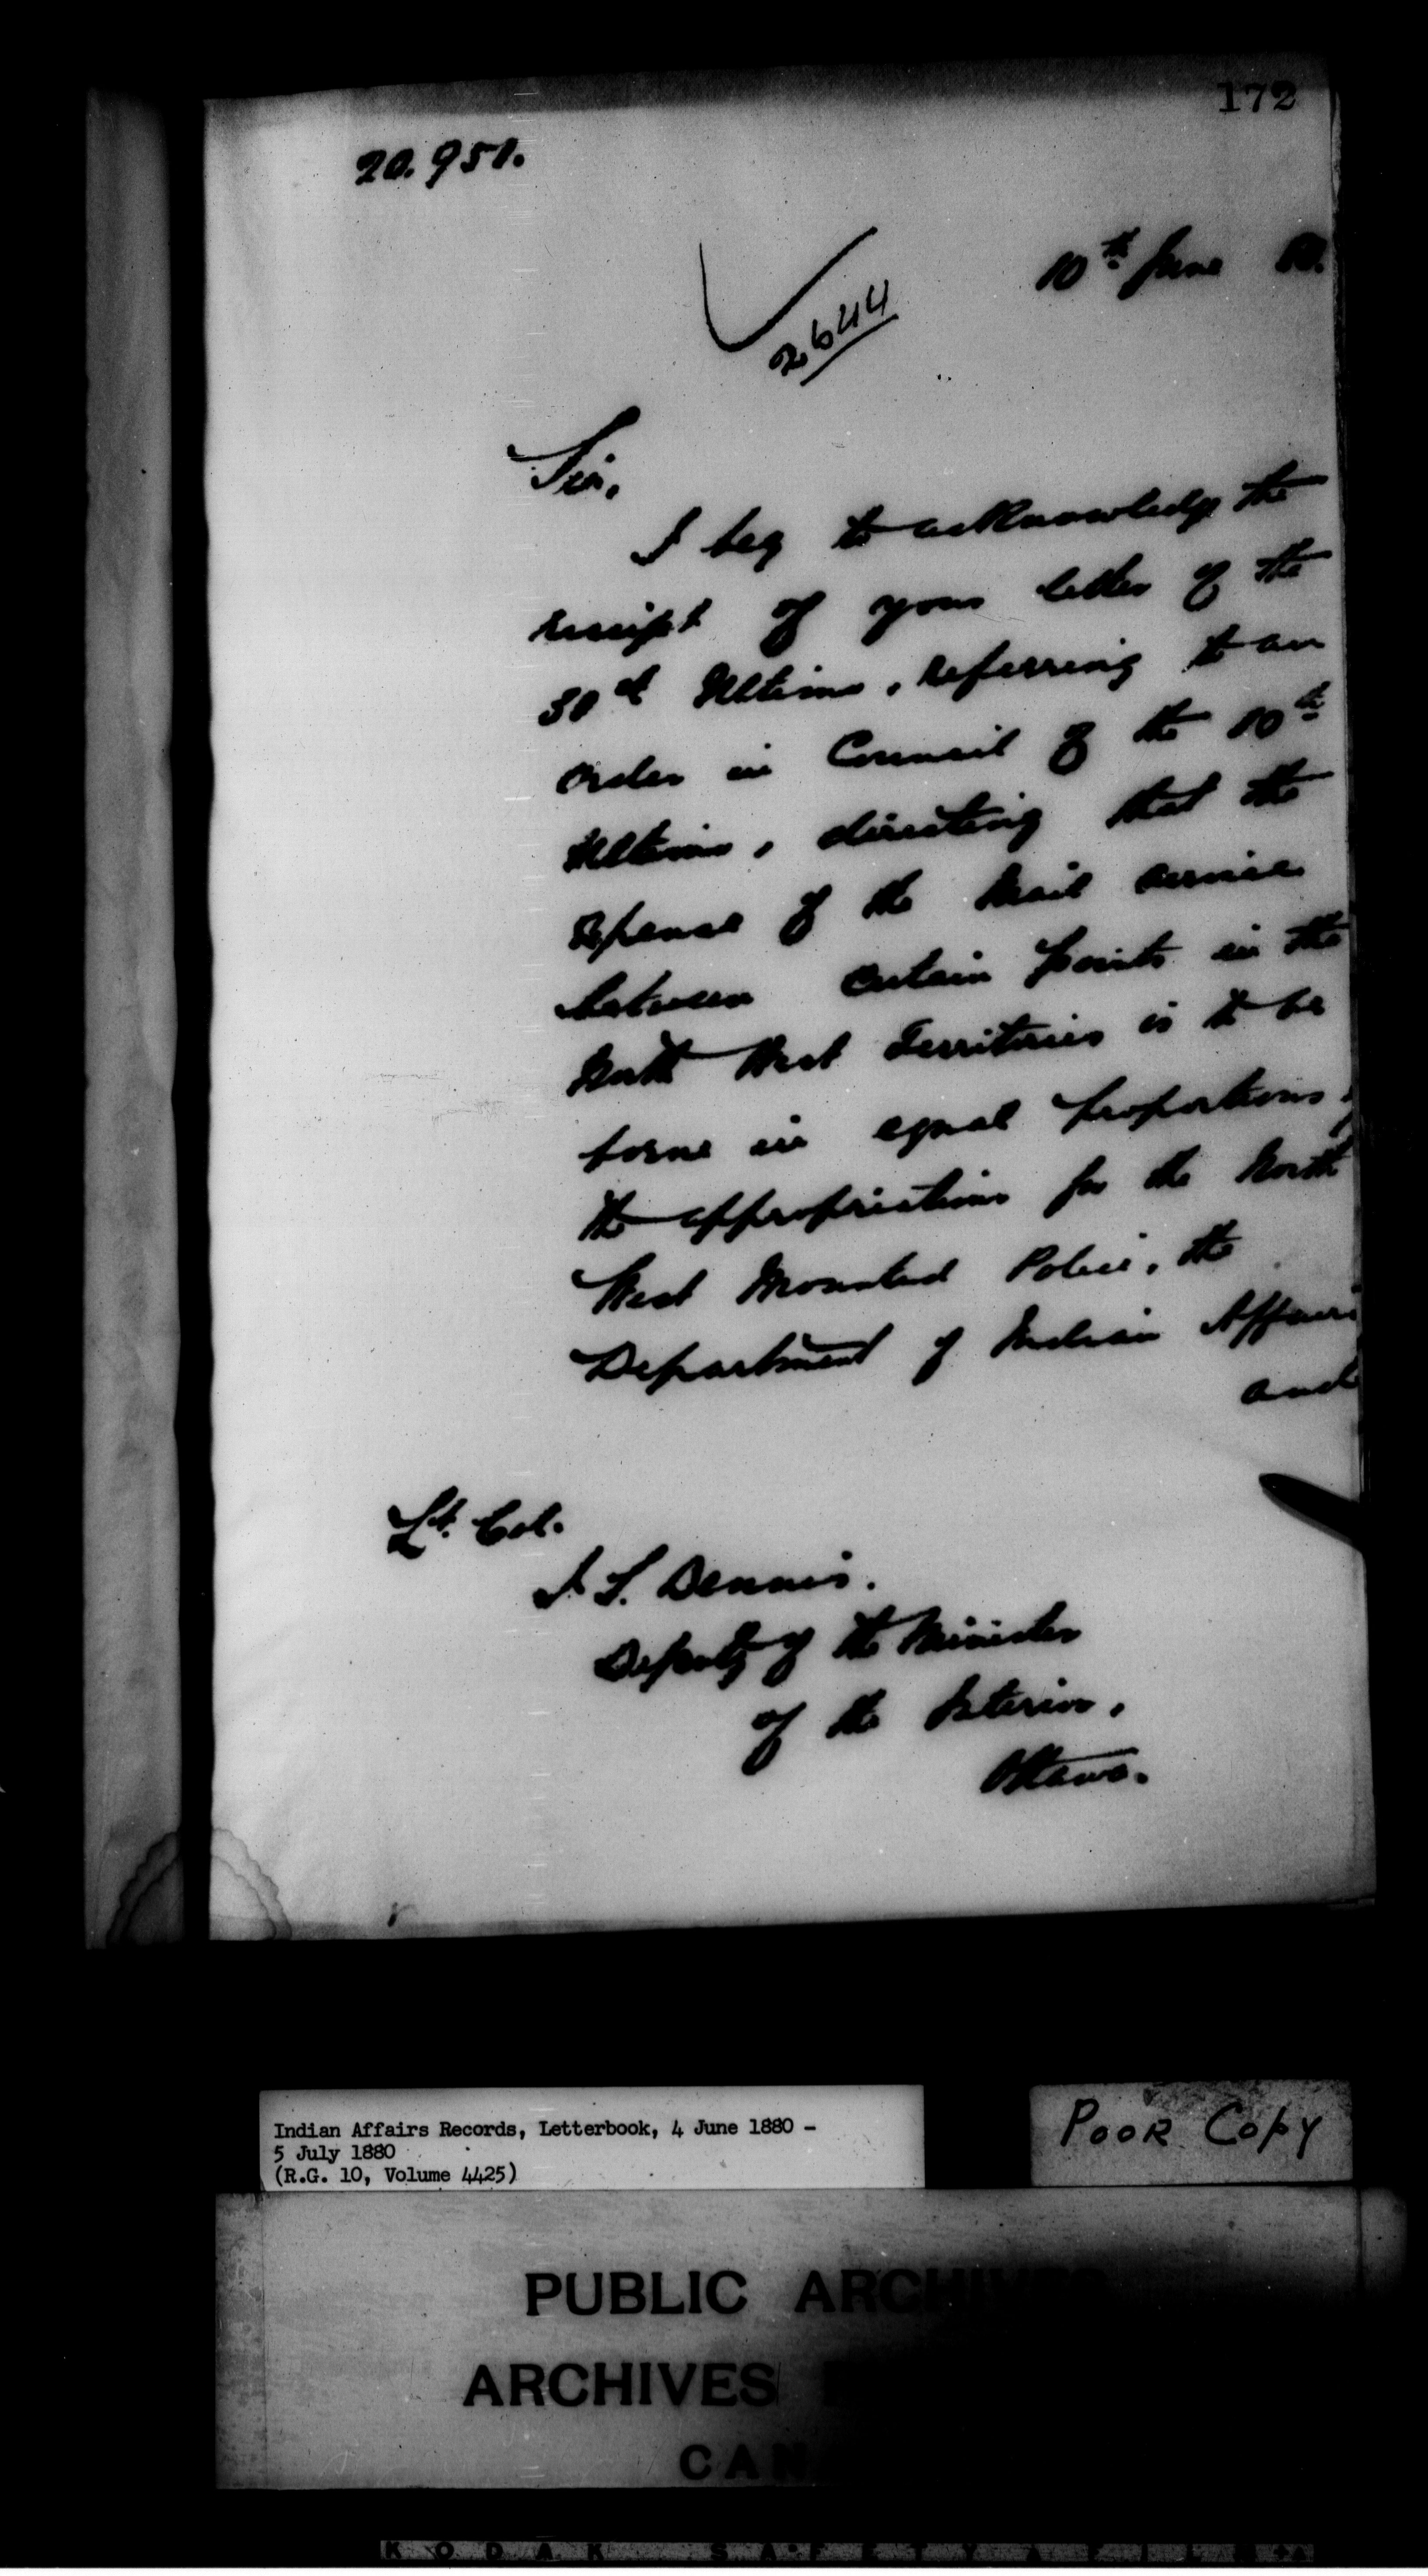 172
20.951.
10th June 80.
2644
Sir,
I beg to acknowledge the
receipt of your letter of the
31st Ultimo, referring to an
Order in Council of the 10th
Ultimo, directing that the
Expense of the Mail service
between certain points in the
North West Territories is to be
borne in equal proportions
the appropriations for the North
West Mounted Police, the
Department of Indian Affairs
and
Lt. Col.
J. S. Dennis.
Deputy of the Minister
of the Interior,
Ottawa.
Indian Affairs Records, Letterbook, 4 June 1880 -
5 July 1880
(R.G. 10, Volume 4425)
POOR COPY
PUBLIC ARCHIVES
ARCHIVES
CAN
KODAK SAFETY